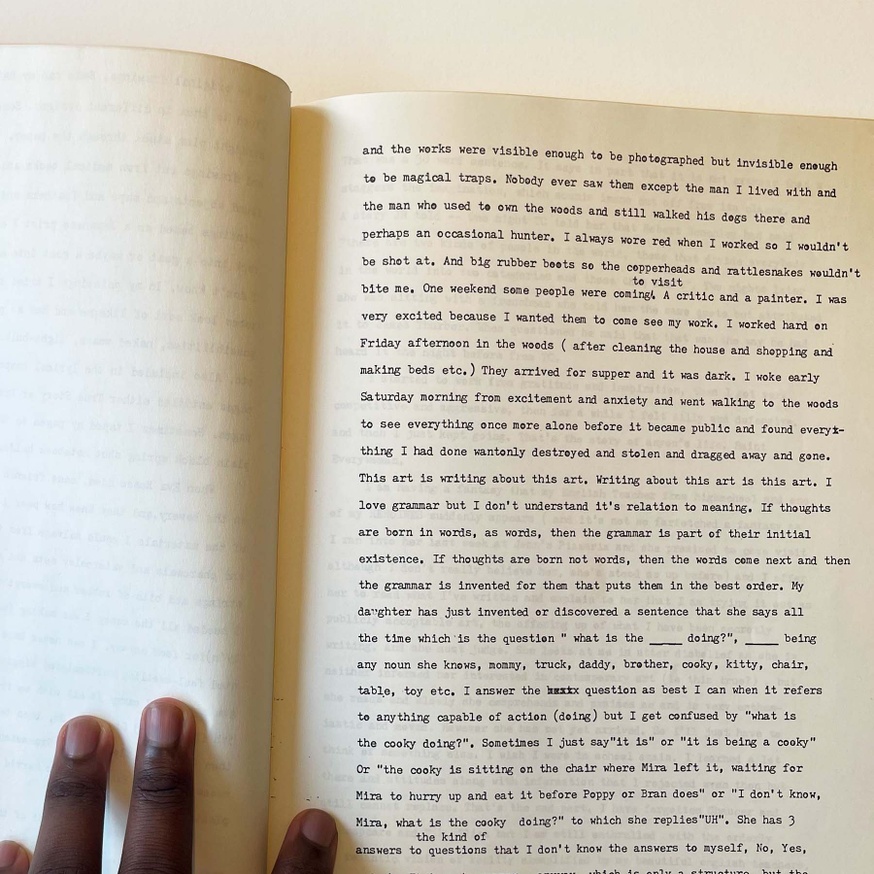 and the works were visible enough to be photographed but invisible enough
to be magical traps. Nobody ever saw them except the man I lived with and
the man who used to own the woods and still walked his dogs there and
perhaps an occasional hunter. I always wore red when I worked so I wouldn't
be shot at. And big rubber boots so the copperheads and rattlesnakes wouldn't
to visit
bite me. One weekend some people were coming. A critic and a painter. I was
very excited because I wanted them to come see my work. I worked hard on
Friday afternoon in the woods ( after cleaning the house and shopping and
making beds etc.) They arrived for supper and it was dark. I woke early
Saturday morning from excitement and anxiety and went walking to the woods
to see everything once more alone before it became public and found every-
thing I had done wantonly destroyed and stolen and dragged away and gone.
This art is writing about this art. Writing about this art is this art. I
love grammar but I don't understand it's relation to meaning. If thoughts
are born in words, as words, then the grammar is part of their initial
existence. If thoughts are born not words, then the words come next and then
the grammar is invented for them that puts them in the best order. My
daughter has just invented or discovered a sentence that she says all
the time which is the question " what is the ____ doing?", ____ being
any noun she knows, mommy, truck, daddy, brother, cooky, kitty, chair,
table, toy etc. I answer the question as best I can when it refers
to anything capable of action (doing) but I get confused by "what is
the cooky doing?". Sometimes I just say"it is" or "it is being a cooky"
Or "the cooky is sitting on the chair where Mira left it, waiting for
Mira to hurry up and eat it before Poppy or Bran does" or "I don't know,
Mira, what is the cooky doing?" to which she replies"UH". She has 3
the kind of
answers to questions that I don't know the answers to myself, No, Yes,
which is only a structure, but the